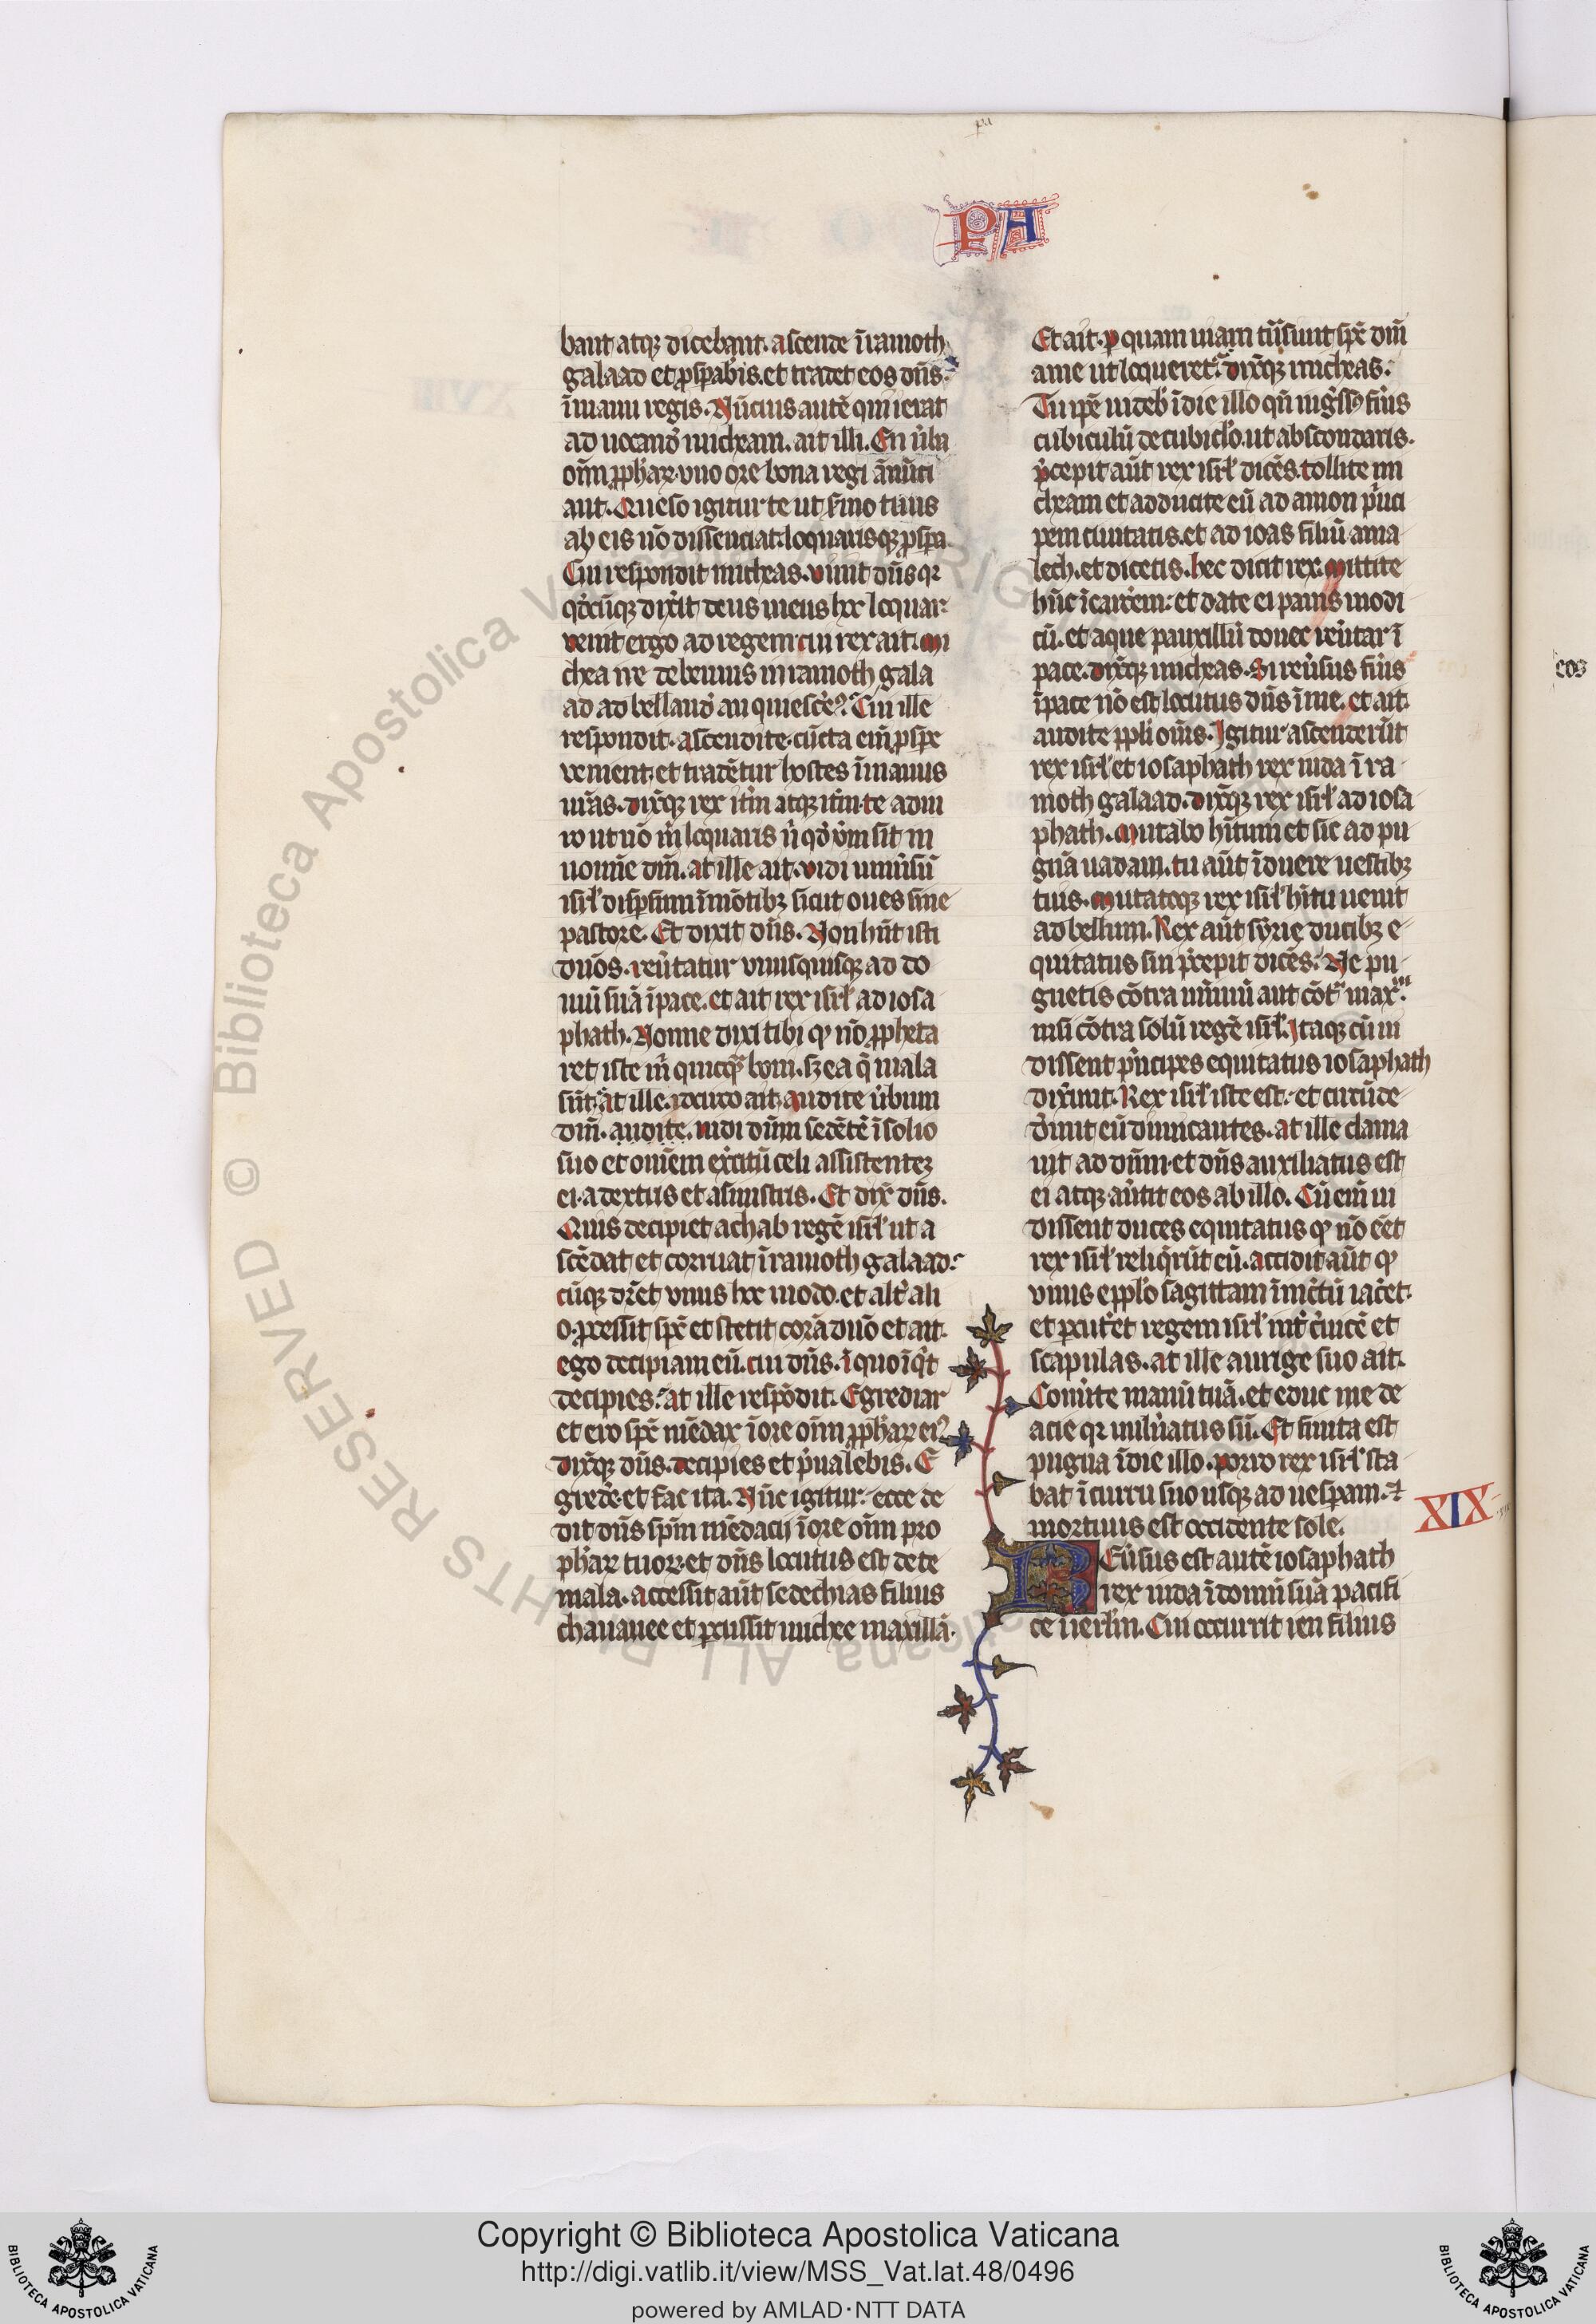 PA
bant atqȝ dicebant. ascende ī ramoth
galaad et ꝓspabis. et tradet eos dn̄s
ī manu regis. Nūcius autē qui ierat
ad uocandū micheam. ait illi. En ủba
om̄m ꝓphaꝝ. vno ore bona regi ānūti
ant. Queso igitur te ut smo tuus
ab eis nō dissenciat. loquarisqȝ ꝓspa.
Cui respondit micheas. viuit dn̄s qꝛ
qdcūqȝ dixit deus meus hoc loquar.
venit ergo ad regem. cui rex ait. mi
chea ne debemus in ramoth gala
ad ad bellandū an quiesce? Cui ille
respondit. ascendite. cūcta em̄ ꝓspe
uenient. et tradētur hostes ī manus
ur̄as. dixitqȝ rex itm̄ atqȝ itm̄ te adiu
ro ut nō m̄ loquaris n̄ qd uim sit in
nomīe dn̄i. at ille ait. vidi uniủsū
isrl dispersum ī mōtibȝ sicut oues sine
pastore. Et dixit dn̄s. Non hn̄t isti
dn̄os. reủtatur vnusquisqȝ ad do
mū suā ī pace. et ait rex isrl ad iosa
phath. Nonne dixi tibi qꝫ nō ꝓpheta
ret iste m̄ quicqȝ boni. sȝ ea q̄ mala
sūt. at ille. idcirco ait. audite ủbum
dn̄i. audite. uidi dn̄m sedētē ī solio
suo et omnem exc̄itū celi assistentez
ei. a dextris et a sinistris. Et dix̄ dn̄s.
Quis decipiet achab regē isrl ut a
scēdat et corruat ī ramoth galaad.
cūqȝ dr̄et vnus hoc modo. et alt̄ ali
o. ꝓcessit spc̄ et stetit corā dn̄o et ait.
ego decipiam eū. cui dn̄s. ī quo īqt
decipies. at ille respōdit. Egrediar
et ero spc̄ mēdax ī ore om̄m ꝓphaꝝ eiꝰ
dixitqȝ dn̄s. decipies et p̄ualebis. E
gredē. et fac ita. Nūc igitur. ecce de
dit dn̄s spm̄ mēdacii ī ore om̄m pro
phaꝝ tuoꝝ. et dn̄s locutus est de te
mala. accessit aūt sedechias filius
chanaee et ꝑcussit michee maxillā.
Et ait. ꝑ quam uiam tn̄siuit spc̄ dn̄i
a me ut loqueretꝰ. dixitqȝ micheas.
Tu ipē uideb ī die illo qn̄ ingssꝰ fūis
cubiculū de cubiclo. ut abscondaris.
p̄cepit aūt rex isrl dicēs. tollite mi
cheam et adducite eū ad amon p̄nci
pem ciuitatis. et ad ioas filiū ama
lech. et dicetis. hec dicit rex. mittite
hūc ī carcem. et date ei panis modi
cū. et aque pauxillū donec reủtar ī
pace. dixitqȝ micheas. Si reủsus fūis
ī pace nō est locutus dn̄s ī me. et ait.
audite ppli om̄s. Igitur ascenderūt
rex isrl et iosaphath rex iuda ī ra
moth galaad. dixitqȝ rex isrl ad iosa
phath. Mutabo hītum et sic ad pu
gnā uadam. tu aūt īduere uestibȝ
tuis. mutatoqȝ rex isrl hītu uenit
ad bellum. Rex aūt syrie ducibȝ e
quitatus sui p̄cepit dicēs. Ne pu
gnetis cōtra minimū aut cōtͣ maxͫ.
nisi cōtra solū regē isrl. Itaqȝ cū ui
dissent p̄ncipes equitatus iosaphath
dixerunt. Rex isrl iste est. et circūde
derūt eū dimicantes. at ille clama
uit ad dn̄m. et dn̄s auxiliatus est
ei atqȝ aủtit eos ab illo. Cū em̄ ui
dissent duces equitatus qꝫ nō eēt
rex isrl reliqrūt eū. accidit aūt qꝫ
vnus e pplo sagittam ī inctū iac̄et.
et ꝑcutet regem isrl int̄ cuicē et
scapulas. at ille aurige suo ait.
Conủte manū tuā. et educ me de
acie qꝛ uulủatus sū. Et finita est
pugna ī die illo. porro rex isrl sta
bat ī curru suo usqȝ ad uesperam. ⁊
mortuus est occidente sole.
XIX
REủsus est autē iosaphath
rex iuda ī domū suā pacifi
ce ī ierlm̄. Cui occurrit ieu filius
eos
Copyright © Biblioteca Apostolica Vaticana
http://digi.vatlib.it/view/MSS_Vat.lat.48/0496
powered by AMLAD·NTT DATA
BIBLIOTECA APOSTOLICA VATICANA
BIBLIOTECA APOSTOLICA VATICANA
© Biblioteca Apostolica Vaticana ALL RIGHTS RESERVED